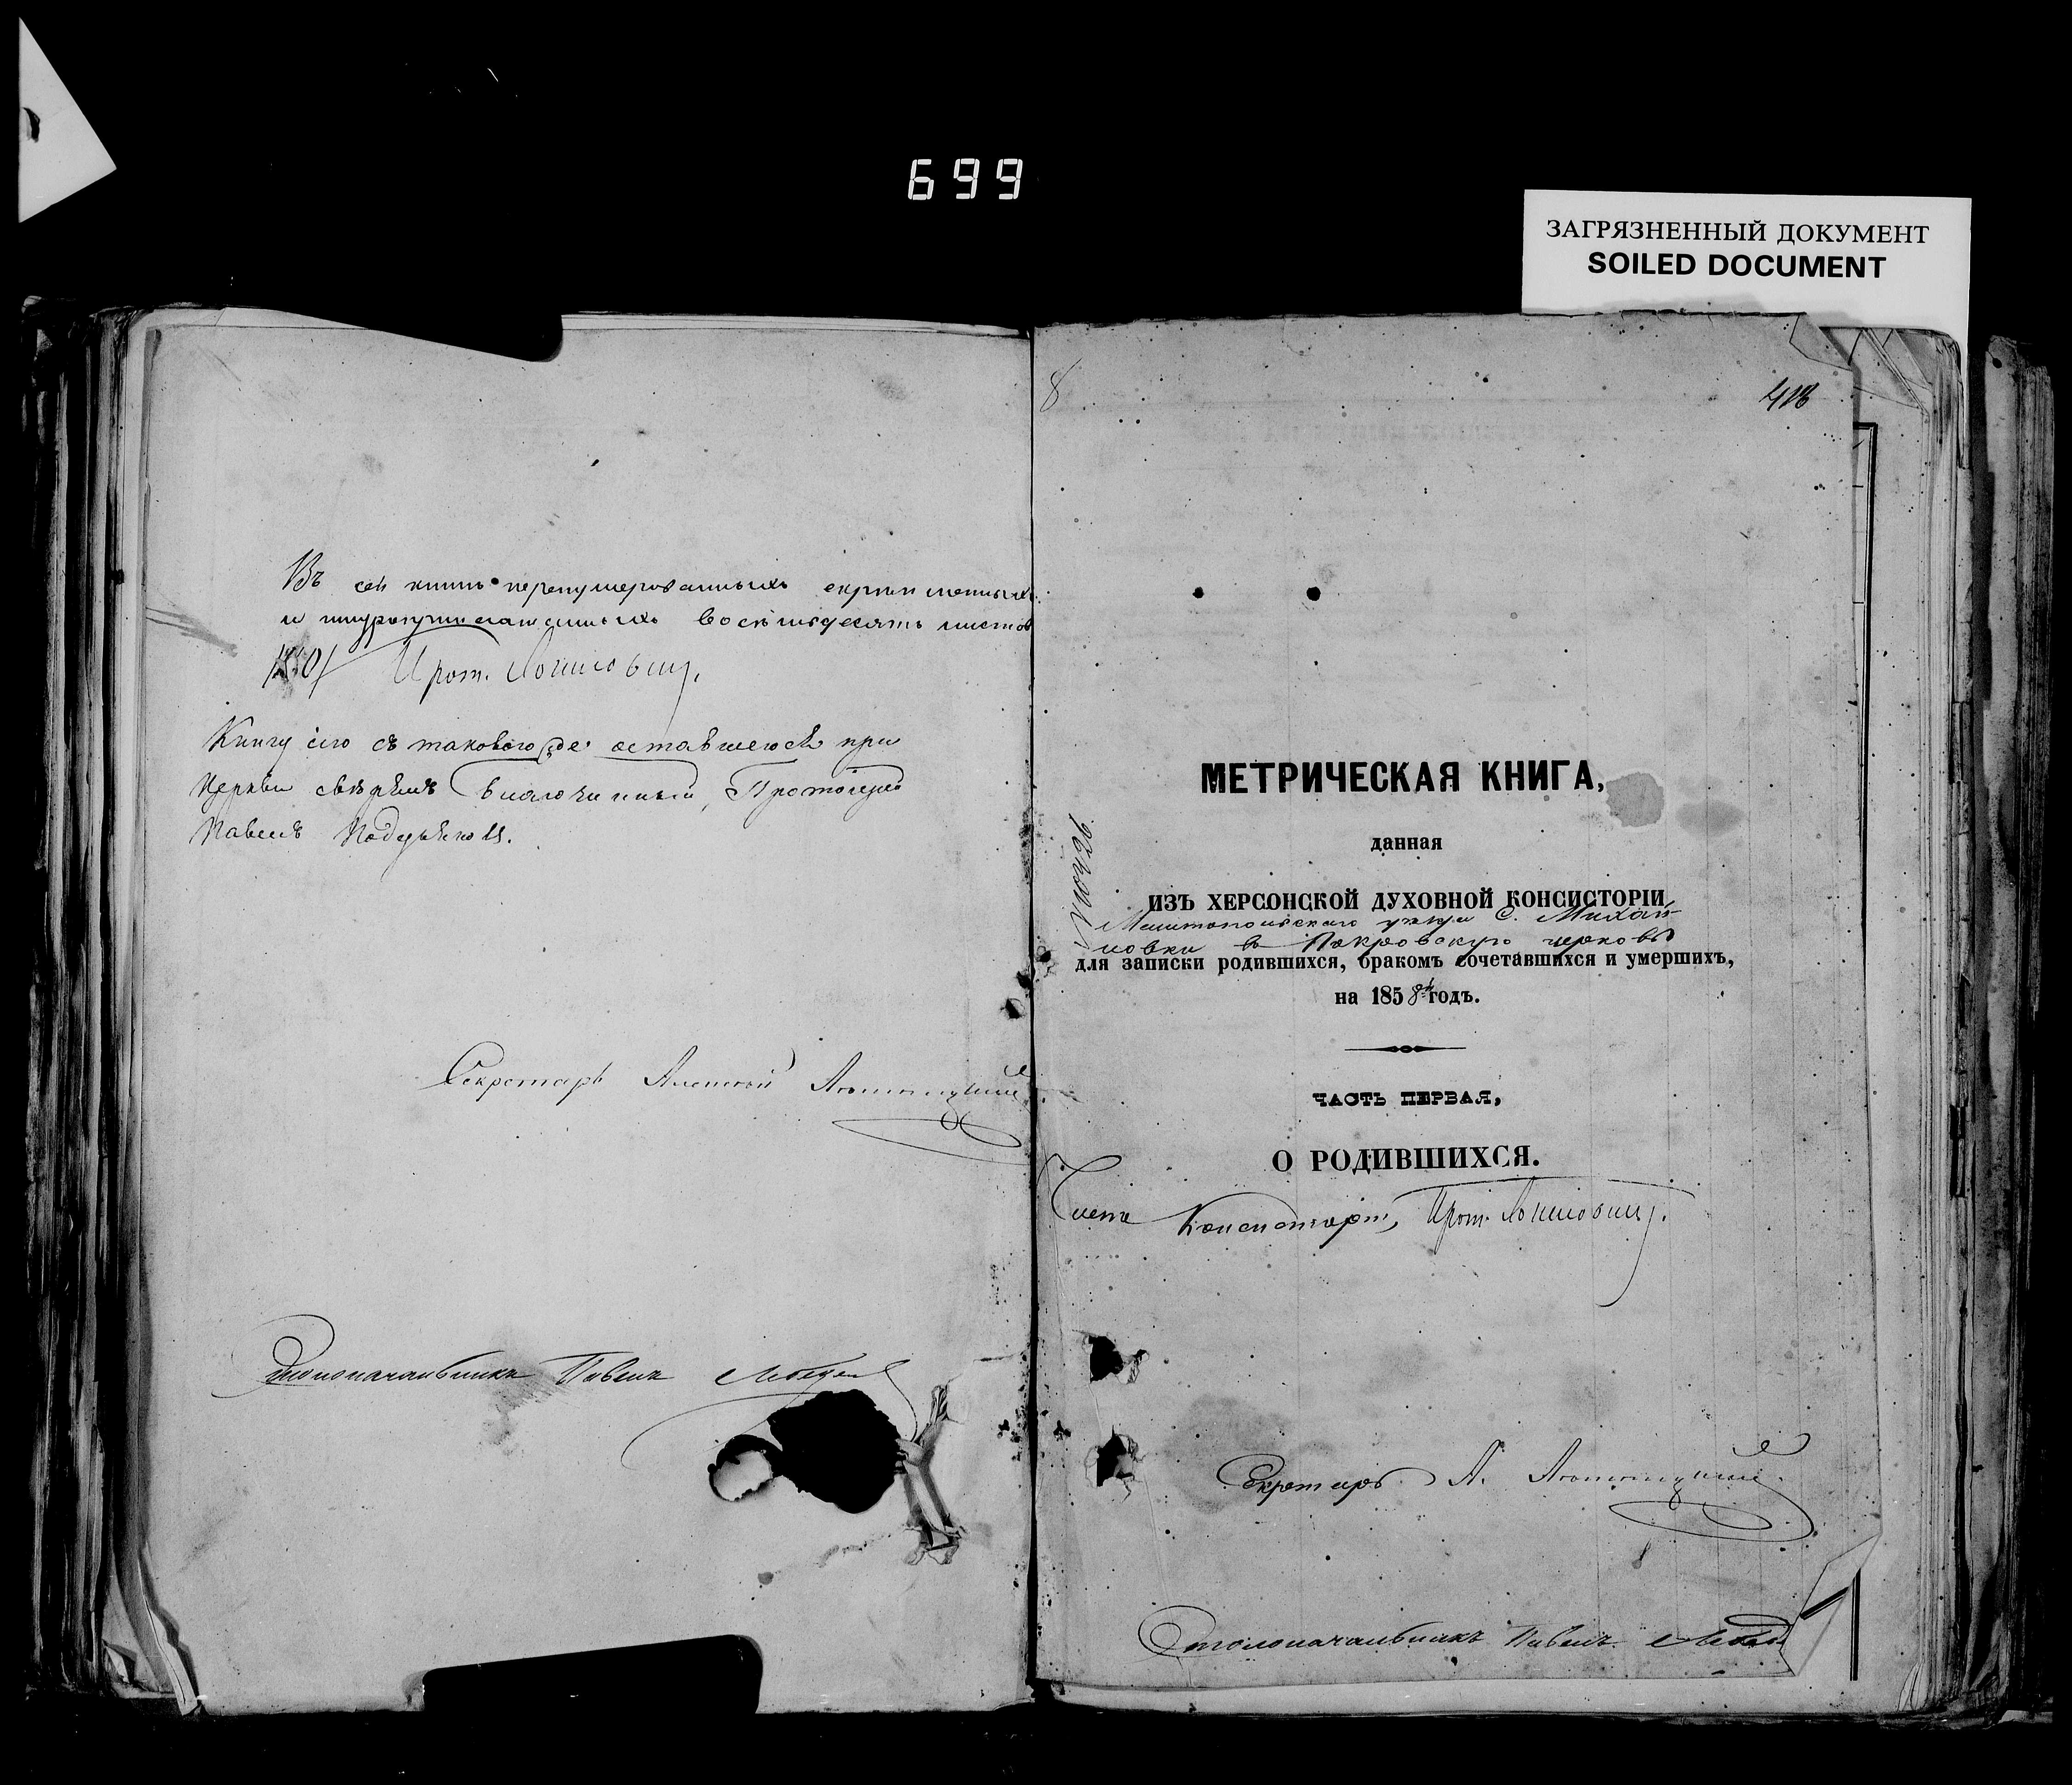 699
ЗАГРЯЗНЕННЫЙ ДОКУМЕНТ
SOILED DOCUMENT
Въ сей книгѣ перенумерованныхъ скрѣпленныхъ
и шнуроприпечатанныхъ восемьдесятъ листовъ
/80/ Прот.
Книгу сію съ таковою же оставшеюся при
церкви свѣрялъ Благочинный, Протоіерей
Павелъ
Секретарь Алексѣй
Столоначальникъ Павелъ Лебедев
8
418
МЕТРИЧЕСКАЯ КНИГА,
данная
ИЗЪ ХЕРСОНСКОЙ ДУХОВНОЙ КОНСИСТОРІИ
Мелитопольскаго уѣзда С. Михай-
ловки въ Покровскую церковь
для записки родившихся, бракомъ сочетавшихся и умершихъ,
на 1858й годъ.
ЧАСТЬ ПЕРВАЯ,
О РОДИВШИХСЯ.
Членъ Консисторіи, Прот.
Секретарь А.
Столоначальникъ Павелъ Лебед